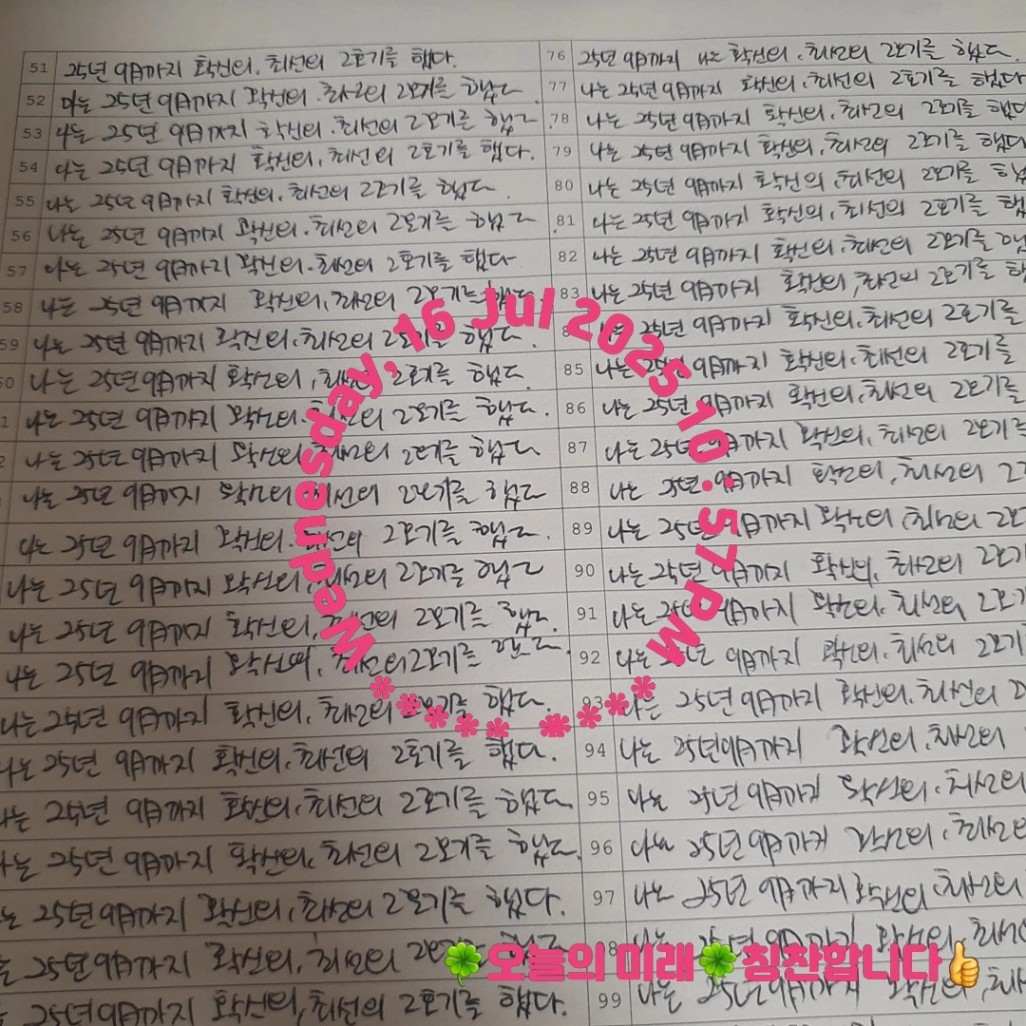 51 25년 9月까지 확신의. 최선의 2호기를 했다.
52 나는 25년 9月까지 확신의. 최선의 2호기를 했다
53 나는 25년 9月까지 확신의. 최선의 2호기를 했다
54 나는 25년 9月까지 확신의, 최선의 2호기를 했다.
55 나는 25년 9月까지 확신의. 최선의 2호기를 했다
56 나는 25년 9月까지 확신의. 최선의 2호기를 했다
57 나는 25년 9月까지 확신의. 최선의 2호기를 했다
58 나는 25년 9月까지 확신의, 최선의 2호기를 했다.
59 나는 25년 9月까지 확신의. 최선의 2호기를 했다.
나는 25년 9月까지 확신의, 최선의 2호기를 했다.
나는 25년 9月까지 확신의. 최선의 2호기를 했다.
나는 25년 9月까지 확신의. 최선의 2호기를 했다.
나는 25년 9月까지 확신의, 최선의 2호기를 했다
나는 25년 9月까지 확신의. 최선의 2호기를 했다.
나는 25년 9月까지 확신의, 최선의 2호기를 했다
나는 25년 9月까지 확신의, 최선의 2호기를 했다.
나는 25년 9月까지 확신의, 최선의 2호기를 했다.
나는 25년 9月까지 확신의, 최선의 2호기를 했다.
나는 25년 9月까지 확신의. 최선의 2호기를 했다.
나는 25년 9月까지 확신의, 최선의 2호기를 했다.
나는 25년 9月까지 확신의, 최선의 2호기를 했다.
는 25년 9月까지 확신의, 최선의 2호기를 했다.
는 25년 9月까지 확신의, 최선의 2호기를 했다
25년 9月까지 확신의, 최선의 2호기를 했다.
76 25년 9月까지 나는 확신의. 최선의 2호기를 했다
77 나는 25년 9月까지 확신의. 최선의 2호기를 했다
78 나는 25년 9月까지 확신의. 최선의 2호기를 했다
79 나는 25년 9月까지 확신의, 최선의 2호기를 했다
80 나는 25년 9月까지 확신의, 최선의 2호기를
81 나는 25년 9月까지 확신의, 최선의 2호기를 했
82 나는 25년 9月까지 확신의. 최선의 2호기를 했
83 나는 25년 9月까지 확신의, 최선의 2호기를
나는 25년 9月까지 확신의, 최선의 2호기를
85 나는 25년 9月까지 확신의. 최선의 2호기를
86 나는 25년 9月까지 확신의, 최선의 2호기를
87 나는 25년 9月까지 확신의, 최선의 2호기를
88 나는 25년 9月까지 확신의, 최선의
89 나는 25년 9月까지 확신의, 최선의 2호
90 나는 25년 9月까지 확신의, 최선의 2호기
91 나는 25년 9月까지 확신의, 최선의 2호기
92 나는 25년 9月까지 확신의. 최선의 2호기
93 나는 25년 9月까지 확신의, 최선의 2
94 나는 25년 9月까지 확신의, 최선의
95 나는 25년 9月까지 확신의, 최선의
96 나는 25년 9月까지 확신의, 최선의
97 나는 25년 9月까지 확신의, 최선의
나는 25년 9月까지 확신의, 최선
99 나는 25년 9月까지 확신의, 최선
Wednesday, 16 Jul 2025 10:57PM
🍀오늘의 미래🍀칭찬합니다👍